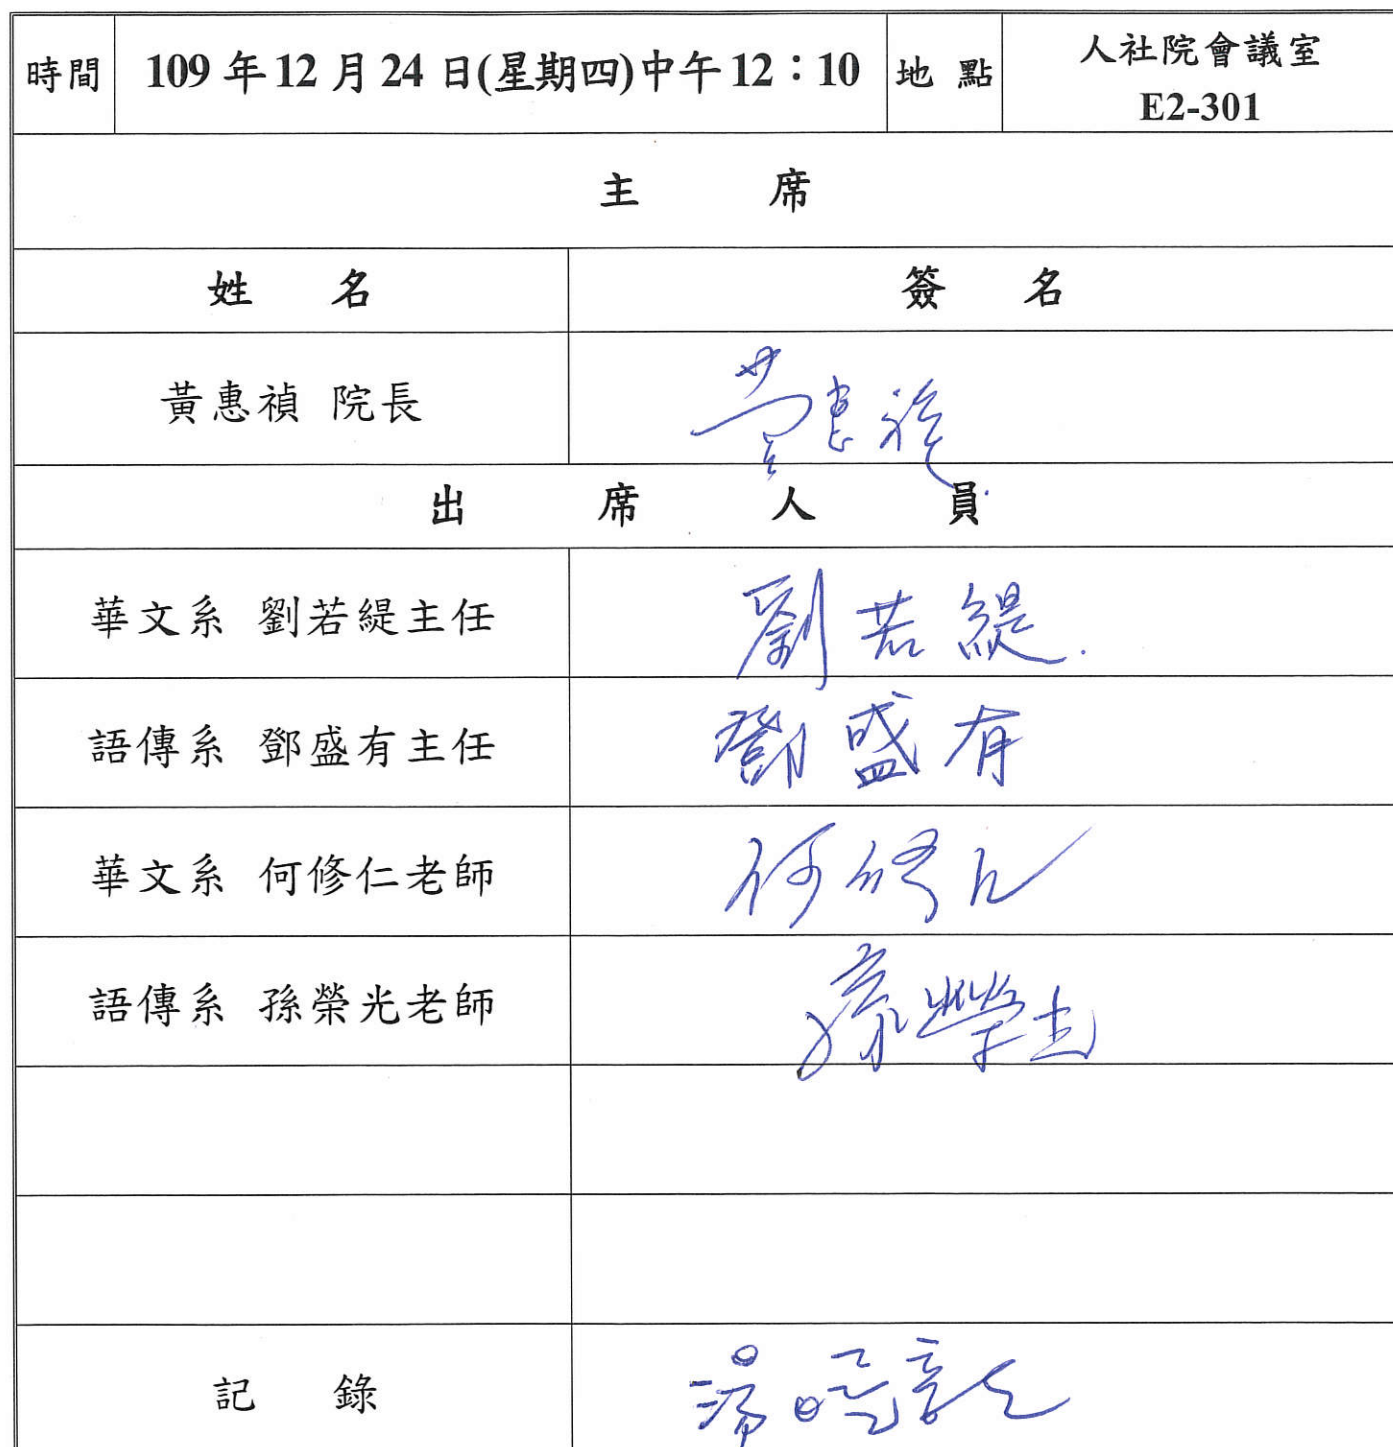 時間 109 年 12 月 24 日(星期四)中午 12：10 地 點 人社院會議室
E2-301
主 席
姓 名 簽 名
黃惠禎 院長 黃惠禎
出 席 人 員
華文系 劉若緹主任 劉若緹
語傳系 鄧盛有主任 鄧盛有
華文系 何修仁老師 何修仁
語傳系 孫榮光老師 孫榮光
記 錄